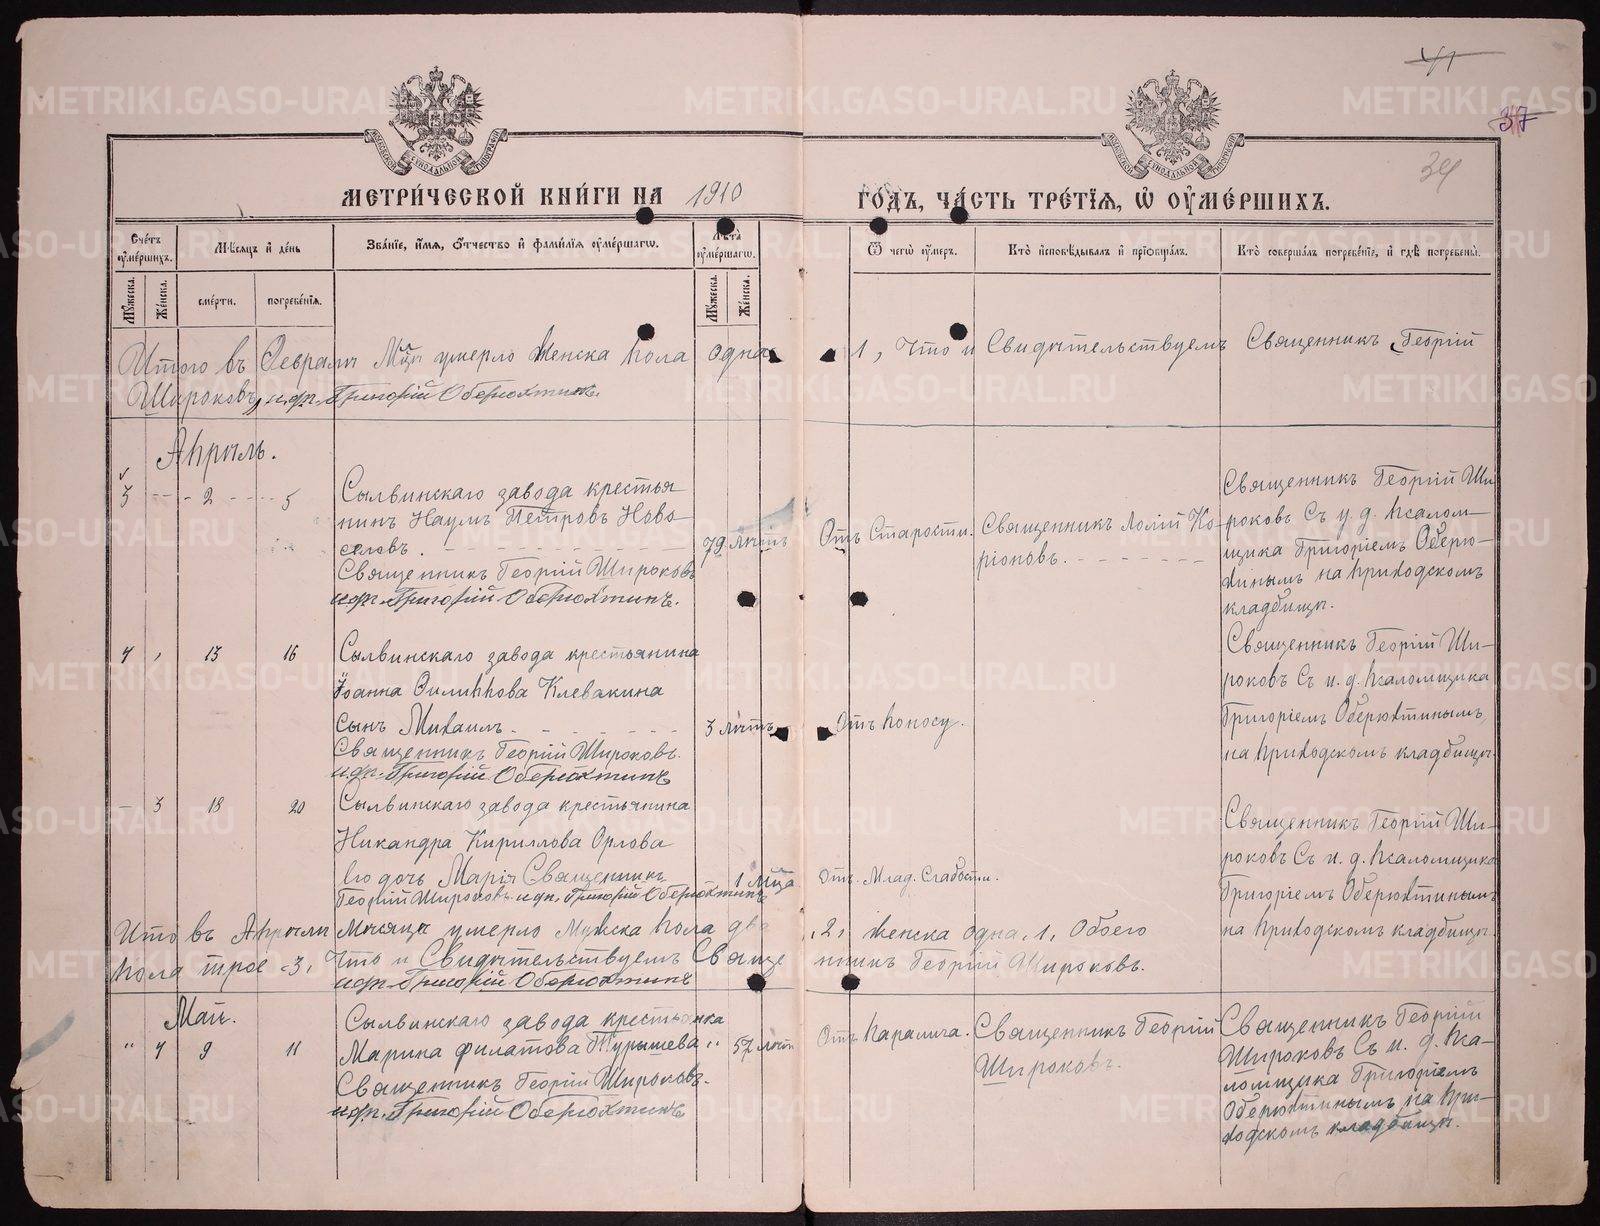 METRIKI.GASO-URAL.RU
41
37
34
МЕТРИ́ЧЕСКОЙ КНИ́ГИ НА 1910 ГО́ДЪ, ЧА́СТЬ ТРЕ́ТІѦ, Ѡ҆ ОУ҆МЕ́РШИХЪ.
Сче́тъ оу҆ме́ршихъ.
Му́жеска.
Же́нска.
Мѣ́сѧцъ и҆ де́нь
сме́рти.
погребе́нїѧ.
Зва́нїе, и҆́мѧ, ѻ҆́тчество и҆ фами́лїѧ оу҆ме́ршагѡ.
Лѣ́та оу҆ме́ршагѡ.
Му́жеска.
Же́нска.
Ѿ чегѡ̀ оу҆́меръ.
Кто̀ и҆сповѣ́дывалъ и҆ прїѻбща́лъ.
Кто̀ соверша́лъ погребе́нїе, и҆ гдѣ̀ погребены̀.
Итого въ Февралѣ М-цѣ умерло женска пола одна 1, Что и Свидѣтельствуемъ Священникъ Георгій
Широковъ, и.дп. Григорій Оберюхтинъ.
Апрѣль.
3 2 5 Сылвинскаго завода крестья
нинъ Наумъ Петровъ Ново
селовъ. 79 лѣтъ
Священникъ Георгій Широковъ
и.дп. Григорій Оберюхтинъ.
Отъ Старости.
Священникъ Ко-
ріоновъ.
Священникъ Георгій Ши
роковъ Съ и. д. псалом-
щика Григоріемъ Оберю-
хтинымъ на приходскомъ
кладбищѣ.
4 13 16 Сылвинскаго завода крестьянина
Іоанна Филиппова Клевакина
сынъ Михаилъ. 3 лѣтъ
Священникъ Георгій Широковъ.
и.дп. Григорій Оберюхтинъ
Отъ поносу.
Священникъ Георгій Ши-
роковъ Съ и. д. псаломщика
Григоріемъ Оберюхтинымъ
на приходскомъ кладбищѣ.
3 18 20 Сылвинскаго завода крестьянина
Никандра Кириллова Орлова
его дочь Марія Священникъ 1 мѣца
Георгій Широковъ. и.дп. Григорій Оберюхтинъ
Отъ Млад. Слабости.
Священникъ Георгій Ши-
роковъ Съ и. д. псаломщика
Григоріемъ Оберюхтинымъ
на приходскомъ кладбищѣ.
Итого въ Апрѣлѣ Мѣсяцѣ умерло Мужска пола два ,2, женска одна, 1, Обоего
пола трое -3, Что и Свидѣтельствуемъ Священникъ Георгій Широковъ.
и.дп. Григорій Оберюхтинъ
Май.
" 4 9 11 Сылвинскаго завода крестьянка
Марина Филатова Турышева " 57 лѣтъ
Священникъ Георгій Широковъ.
и.дп. Григорій Оберюхтинъ
Отъ паралича.
Священникъ Георгій
Широковъ.
Священникъ Георгій
Широковъ Съ и. д. пса-
ломщика Григоріемъ
Оберюхтинымъ на при-
ходскомъ кладбищѣ.